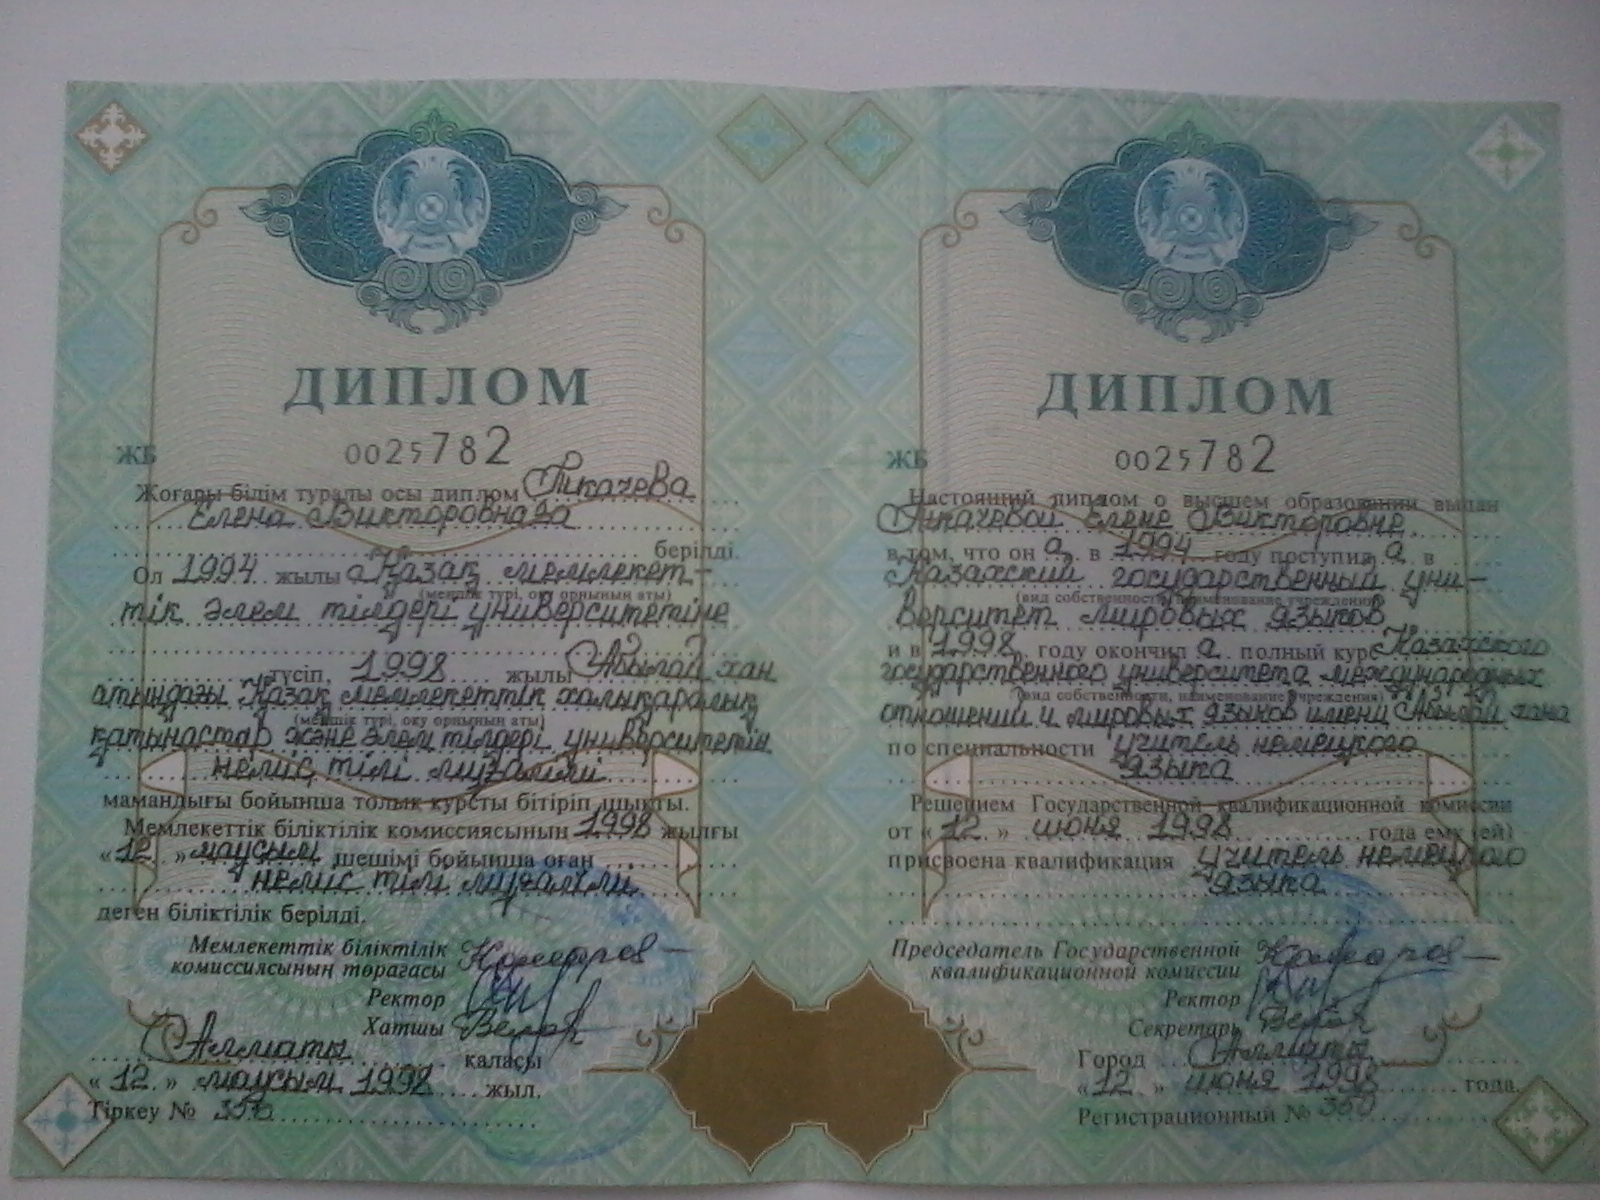 ДИПЛОМ
ЖБ 0025782
Жоғары білім туралы осы диплом Ткачева
Елена Викторовнаға
берілді.
Ол 1994 жылы Қазақ мемлекет-
(меншік түрі, оқу орнының аты)
тік әлем тілдері университетіне
түсіп, 1998 жылы Абылай хан
атындағы Қазақ мемлекеттік халықаралық
(меншік түрі, оқу орнының аты)
қатынастар және әлем тілдері университетін
неміс тілі мұғалімі
мамандығы бойынша толық курсты бітіріп шықты.
Мемлекеттік біліктілік комиссиясының 1998 жылғы
«12» маусым шешімі бойынша оған
неміс тілі мұғалімі
деген біліктілік берілді.
Мемлекеттік біліктілік
комиссиясының төрағасы
Ректор
Хатшы
Алматы қаласы
«12» маусым 1998 жыл.
Тіркеу №
ДИПЛОМ
ЖБ 0025782
Настоящий диплом о высшем образовании выдан
Ткачевой Елене Викторовне
в том, что он а в 1994 году поступил а в
Казахский государственный уни-
(вид собственности, наименование учреждения)
верситет мировых языков
и в 1998 году окончил а полный курс Казахского
государственного университета международных
(вид собственности, наименование учреждения)
отношений и мировых языков имени Абылай хана
по специальности учитель немецкого
языка
Решением Государственной квалификационной комиссии
от «12» июня 1998 года ему (ей)
присвоена квалификация учитель немецкого
языка
Председатель Государственной
квалификационной комиссии
Ректор
Секретарь
Город Алматы
«12» июня 1998 года.
Регистрационный №